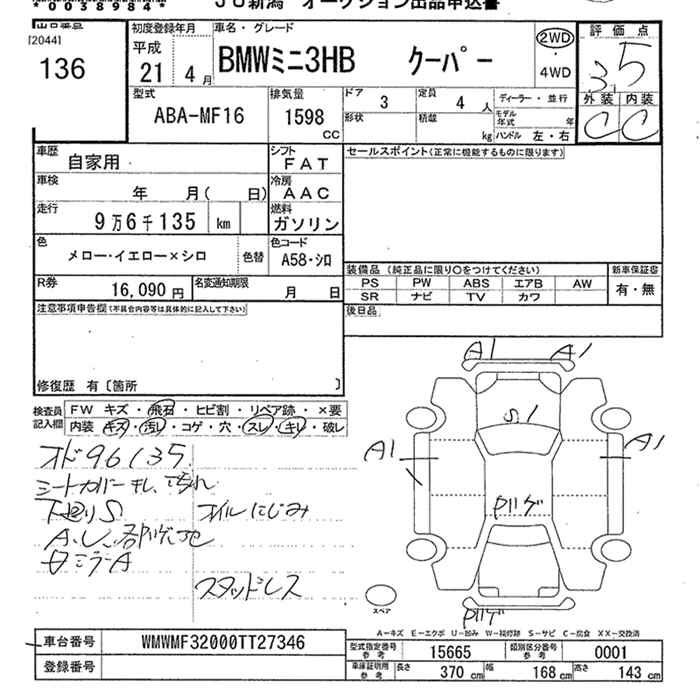 *0038984*
JU新潟 オークション出品申込書
出品番号
[2044]
136
初度登録年月
平成
21 4月
車名・グレード
BMWミニ3HB クーパー
2WD
・
4WD
評価点
3.5
外装 内装
C C
型式
ABA-MF16
排気量
1598
CC
ドア 3
形状
定員 4 人
積載 kg
ディーラー・並行
モデル年式 年
ハンドル 左・右
車歴 自家用
シフト FAT
車検 年 月( 日)
冷房 AAC
走行 9万6千135 km
燃料 ガソリン
色 メロー・イエロー×シロ
色替
色コード A58・シロ
R券 16,090円
名変通知期限 月 日
セールスポイント(正常に機能するものに限ります)
装備品 (純正品に限り○をつけてください)
PS PW ABS エアB AW
SR ナビ TV カワ
新車保証書
有・無
後日品
注意事項申告欄(不具合内容等は具体的に記入して下さい)
修復歴 有〔箇所 〕
検査員記入欄
FW キズ・飛石・ヒビ割・リペア跡・×要
内装 キズ・汚レ・コゲ・穴・スレ・キレ・破レ
オド96135
シートカバーキレ、
下廻りS オイルにじみ
A.U.
ミラーA
スタッドレス
A1 A1
S.1
A1 A1
ハゲ
ハゲ
スペア
A-キズ E-エクボ U-凹み W-補修跡 S-サビ C-腐食 XX-交換済
車台番号 WMWMF32000TT27346
登録番号
型式指定番号 参考 15665
類別区分番号 参考 0001
車庫証明用 参考 長さ 370 cm 幅 168 cm 高さ 143 cm